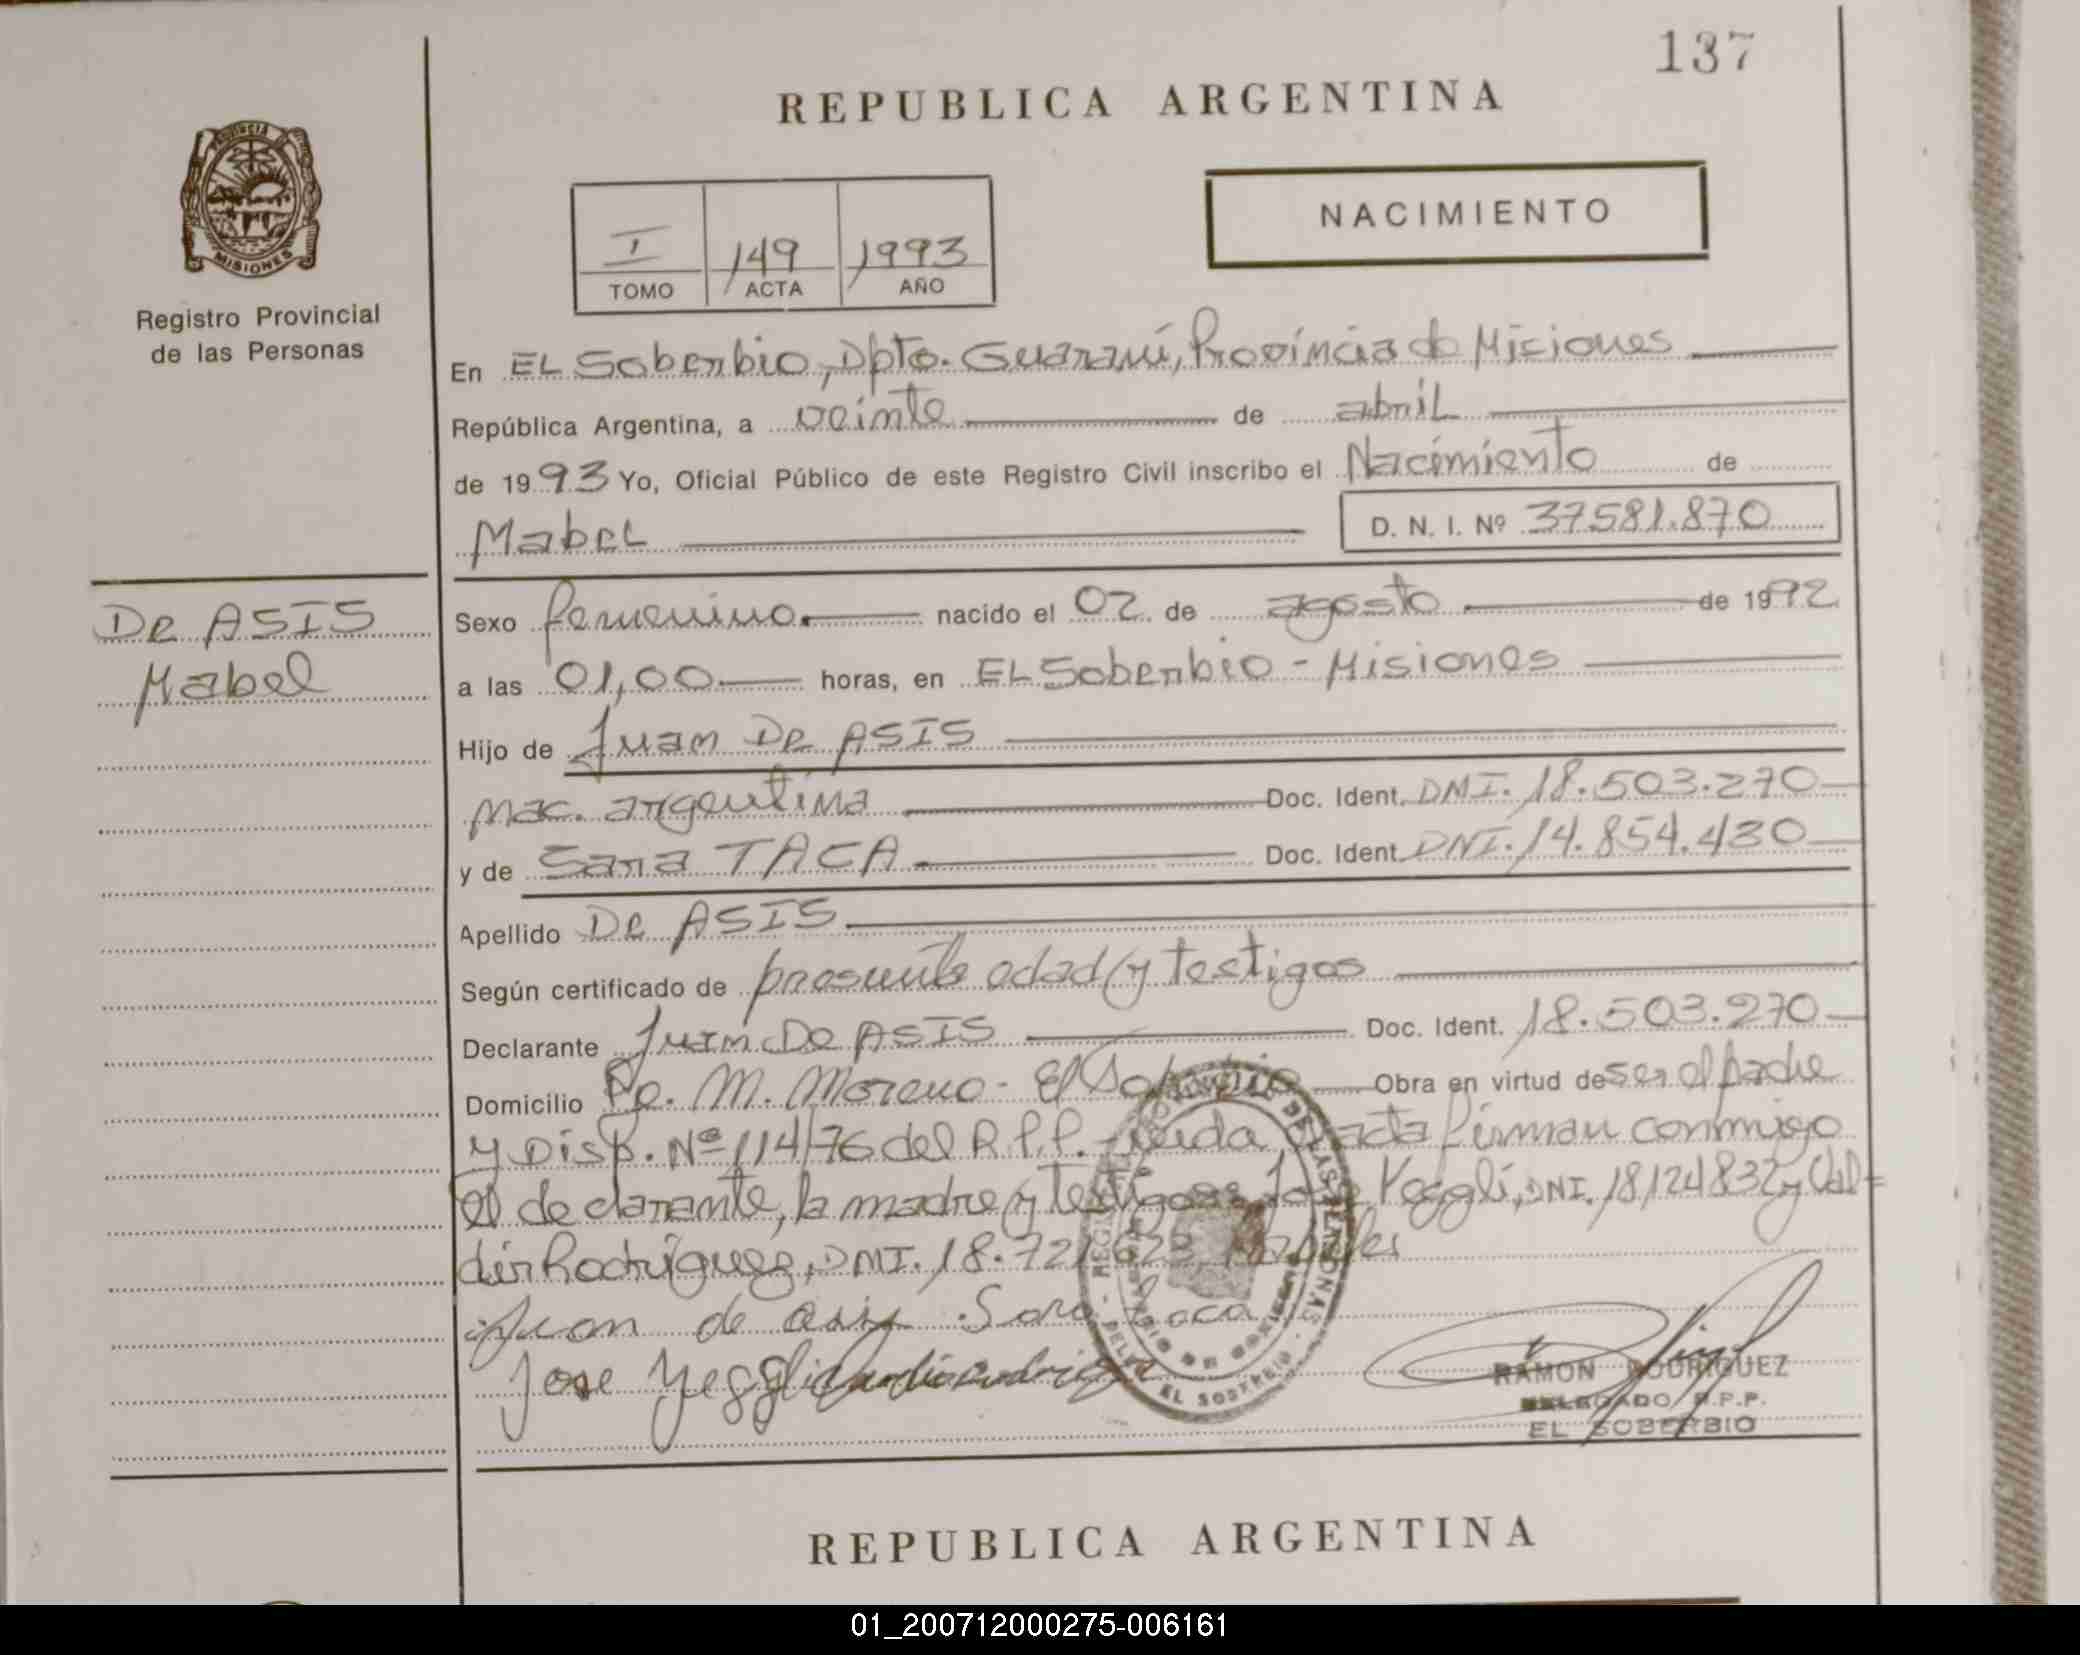 137
REPUBLICA ARGENTINA
NACIMIENTO
PROVINCIA
MISIONES
Registro Provincial
de las Personas
I 149 1993
TOMO ACTA AÑO
En EL Soberbio, Dpto. Guaraní, Provincia de Misiones
República Argentina, a veinte de abril
de 1993 Yo, Oficial Público de este Registro Civil inscribo el Nacimiento de
Mabel D. N. I. Nº 37581.870
De ASIS
Mabel
Sexo femenino. nacido el 02 de agosto de 1992
a las 01,00 horas, en EL Soberbio - Misiones
Hijo de Juan De ASIS
nac. argentina Doc. Ident. DNI. 18.503.270
y de Sara TACA Doc. Ident. DNI. 14.854.430
Apellido De ASIS
Según certificado de presunta edad y testigos
Declarante Juan De ASIS Doc. Ident. 18.503.270
Domicilio M. Moreno - El Soberbio Obra en virtud de ser el padre
y Disp. Nº 114/76 del R.P.P. Leida el acta firman conmigo
el declarante, la madre y testigos: José Yeggli, DNI. 18124832 y Val=
dir Rodriguez, DNI. 18.721.623
Juan de asis Sara taca
Jose Yeggli
RAMON RODRIGUEZ
DELEGADO R.P.P.
EL SOBERBIO
REPUBLICA ARGENTINA
01_200712000275-006161